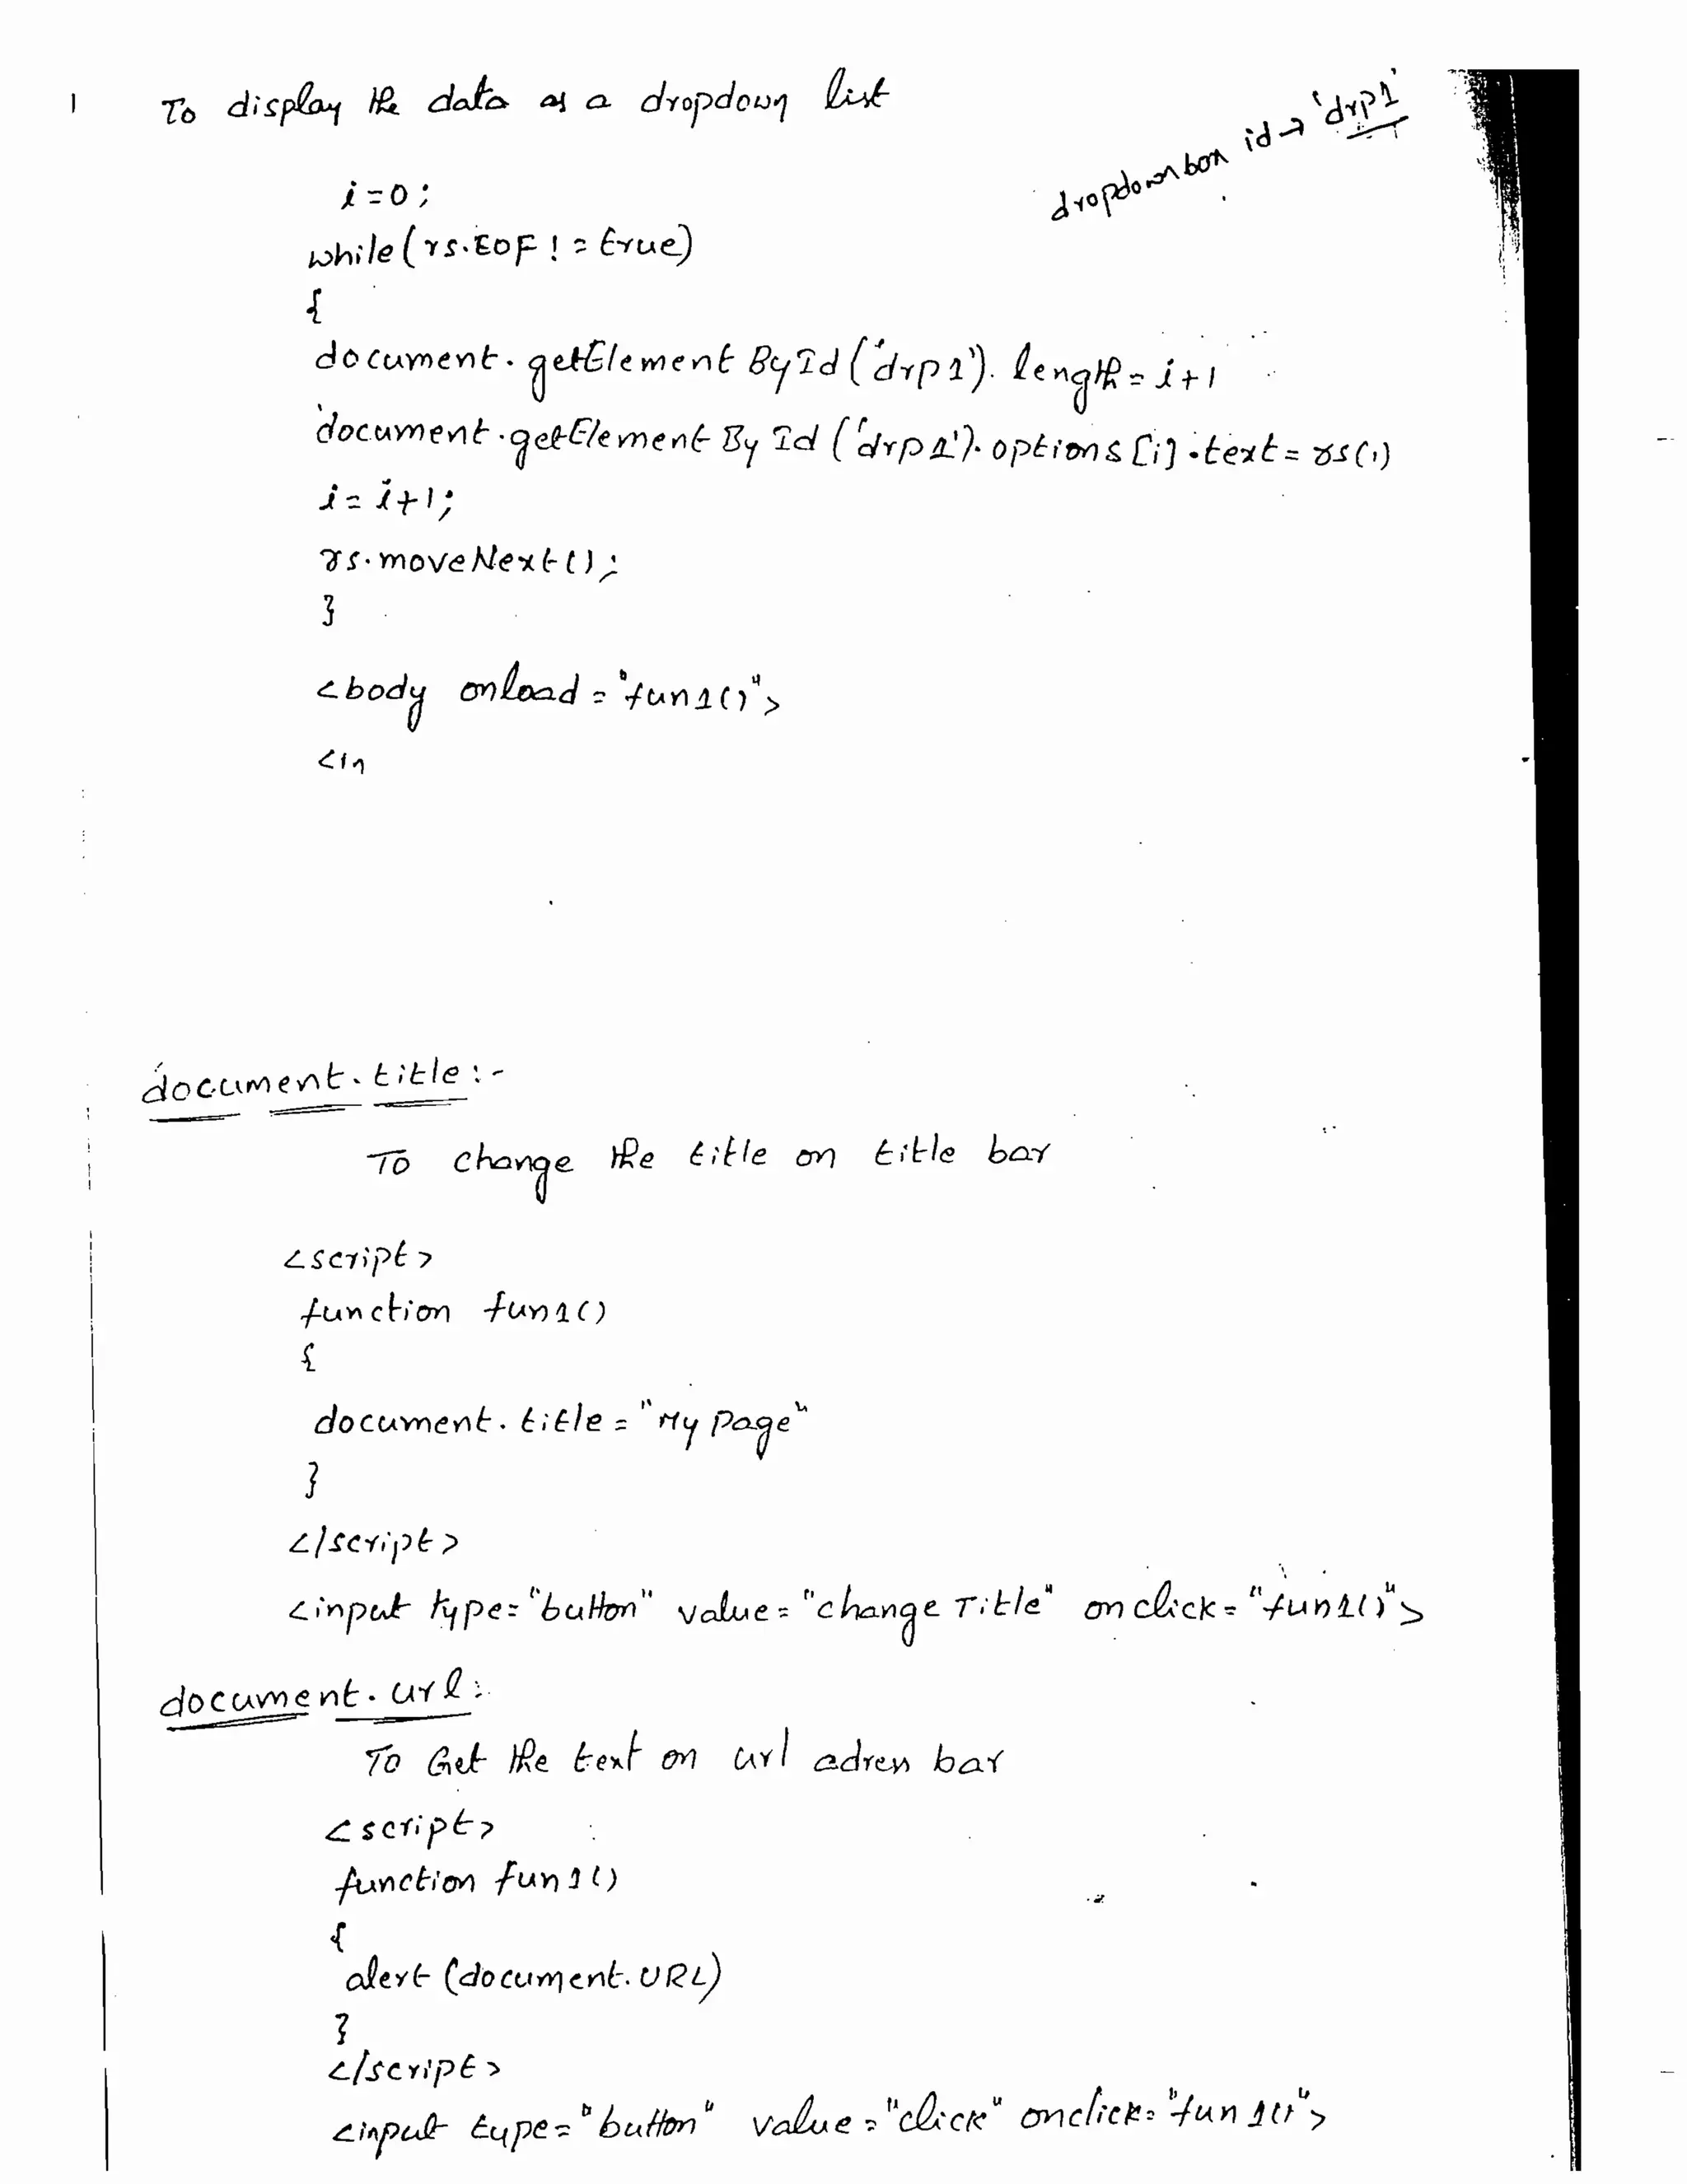 To display the data as a dropdown list
dropdownbox id → 'drp1'
i=0;
while(rs.EOF != true)
{
document.getElementById('drp1').length=i+1
document.getElementById('drp1').options[i].text=rs(1)
i=i+1;
rs.moveNext();
}
<body onload="fun1()">
<in
document.title:-
To change the title on title bar
<script>
function fun1()
{
document.title="My page"
}
</script>
<input type="button" value="change Title" onclick="fun1()">
document.url:
To Get the text on url adress bar
<script>
function fun1()
{
alert(document.URL)
}
</script>
<input type="button" value="click" onclick="fun1()">